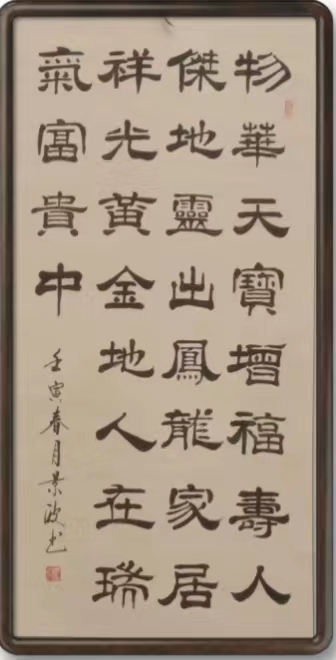 物華天寶增福壽人
傑地靈出鳳龍家居
祥光黃金地人在瑞
氣富貴中
壬寅春月景波书